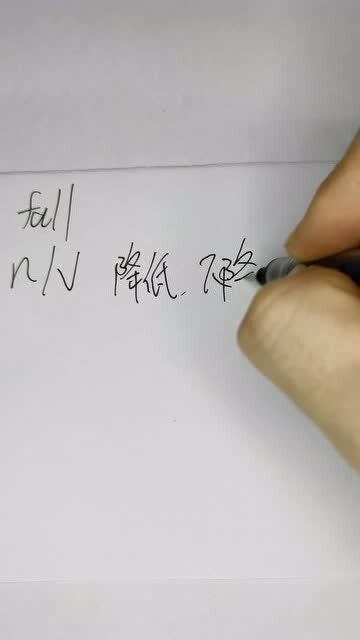 fall
n/v 降低、下降